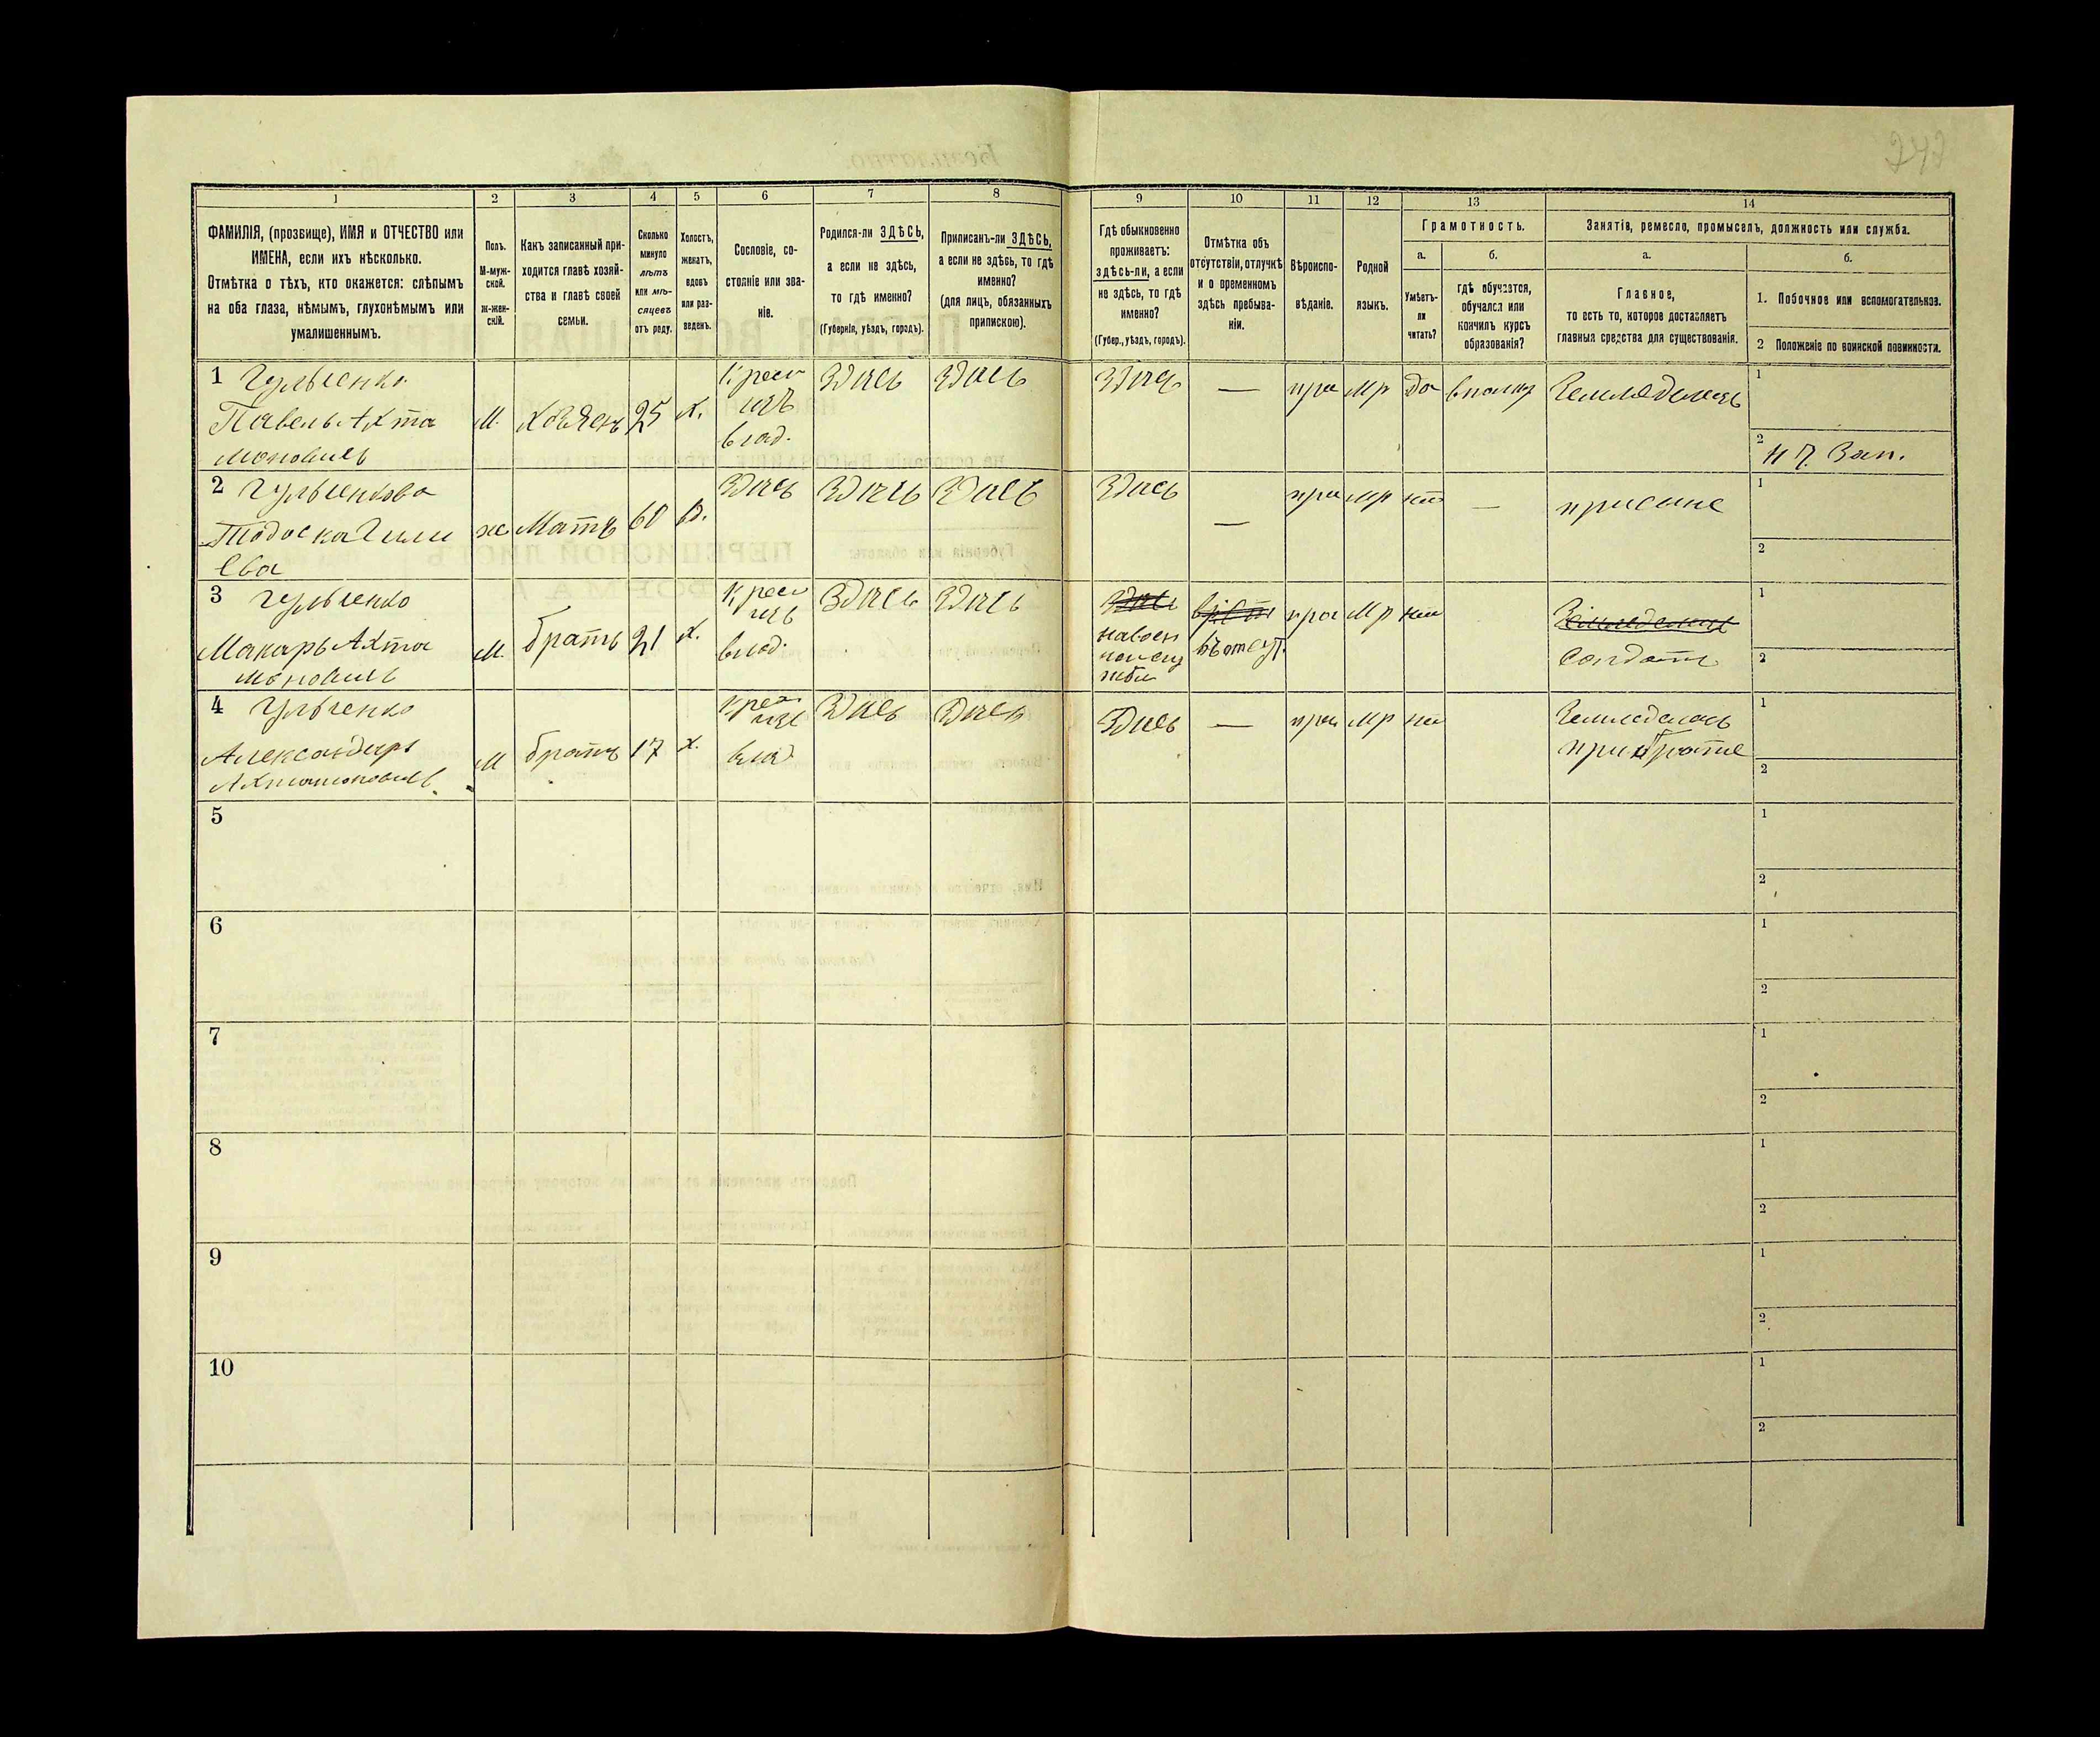 242
1
2
3
4
5
6
7
8
9
10
11
12
13
14
ФАМИЛІЯ, (прозвище), ИМЯ и ОТЧЕСТВО или
ИМЕНА, если ихъ нѣсколько.
Отмѣтка о тѣхъ, кто окажется: слѣпымъ
на оба глаза, нѣмымъ, глухонѣмымъ или
умалишеннымъ.
Полъ.
М-муж-
ской.
ж-жен-
скій.
Какъ записанный при-
ходится главѣ хозяй-
ства и главѣ своей
семьи.
Сколько
минуло
лѣтъ
или мѣ-
сяцевъ
отъ роду.
Холостъ,
женатъ,
вдовъ
или раз-
веденъ.
Сословіе, со-
стояніе или зва-
ніе.
Родился-ли ЗДѢСЬ,
а если не здѣсь,
то гдѣ именно?
(Губернія, уѣздъ, городъ).
Приписанъ-ли ЗДѢСЬ,
а если не здѣсь, то гдѣ
именно?
(для лицъ, обязанныхъ
припискою).
Гдѣ обыкновенно
проживаетъ:
здѣсь-ли, а если
не здѣсь, то гдѣ
именно?
(Губер., уѣздъ, городъ).
Отмѣтка объ
отсутствіи, отлучкѣ
и о временномъ
здѣсь пребыва-
ніи.
Вѣроиспо-
вѣданіе.
Родной
языкъ.
Грамотность.
а.
Умѣетъ-
ли
читать?
б.
гдѣ обучается,
обучался или
кончилъ курсъ
образованія?
Занятія, ремесло, промыселъ, должность или служба.
а.
Главное,
то есть то, которое доставляетъ
главныя средства для существованія.
б.
1. Побочное или вспомогательное.
2 Положеніе по воинской повинности.
1 Гульченко
Павелъ Ахта
моновичъ
М.
Хозяенъ
25
х.
Крест
изъ
влад.
Здись
Здись
Здись
—
пра
Мр
да
Земледелецъ
1
2
Н Ч. Зап.
2 Гульченкова
ева
ж
Мать
60
в.
Здись
Здись
Здись
Здись
—
пра
мр
—
присине
1
2
3 Гульченко
Макаръ Ахта
моновичъ
М.
братъ
21
х.
Крест
изъ
влад.
Здись
Здись
Здись
навоен
жби
въотсут.
пра
Мр
Солдатъ
1
2
4 Гульченко
Александръ
Ахтамоновичъ
М
братъ
17
х.
Крест
изъ
влад
Здись
Здись
Здись
—
пра
Мр
Земледелецъ
прибрате
1
2
5
1
2
6
1
2
7
1
2
8
1
2
9
1
2
10
1
2